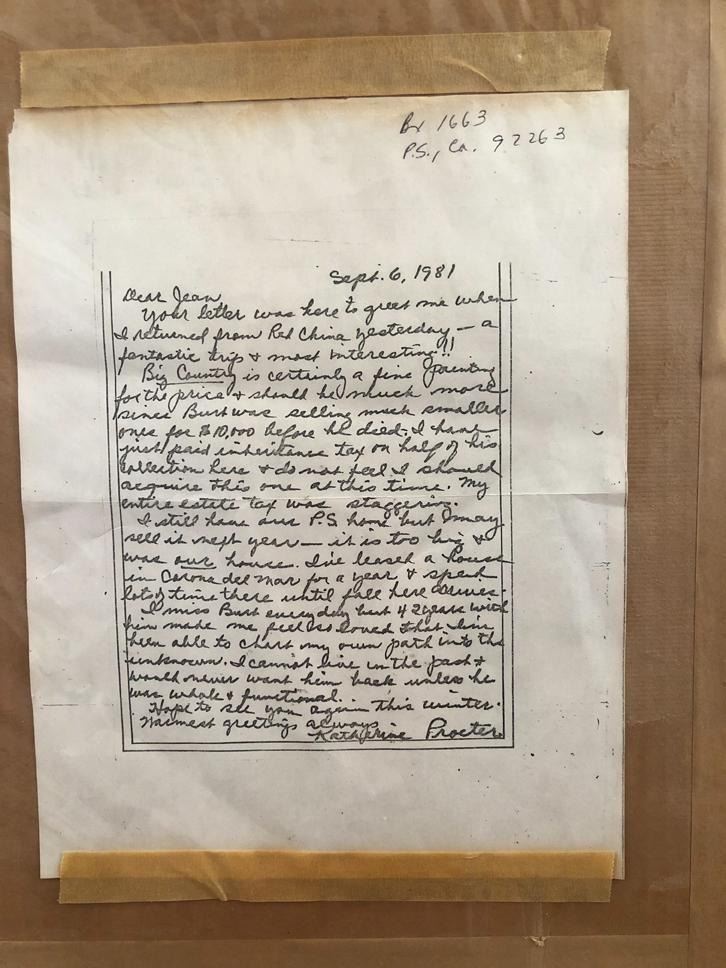 Bx 1663
P.S., Ca. 92263
Sept. 6, 1981
Dear Jean,
Your letter was here to greet me when
I returned from Red China yesterday — a
fantastic trip & most interesting!!
Big Country is certainly a fine painting
for the price & should be much more
since Burt was selling much smaller
ones for $10,000 before he died. I have
just paid inheritance tax on half of his
collection here & do not feel I should
acquire this one at this time. My
entire estate tax was staggering.
I still have our P.S. home but I may
sell it next year — it is too big &
was our house. I've leased a house
in Corona del Mar for a year & spend
lots of time there until fall here arrives.
I miss Burt everyday but 42 years with
him made me feel so loved that I've
been able to chart my own path into the
unknown. I cannot live in the past &
would never want him back unless he
was whole & functional.
Hope to see you again this winter.
Warmest greetings always,
Katherine Procter